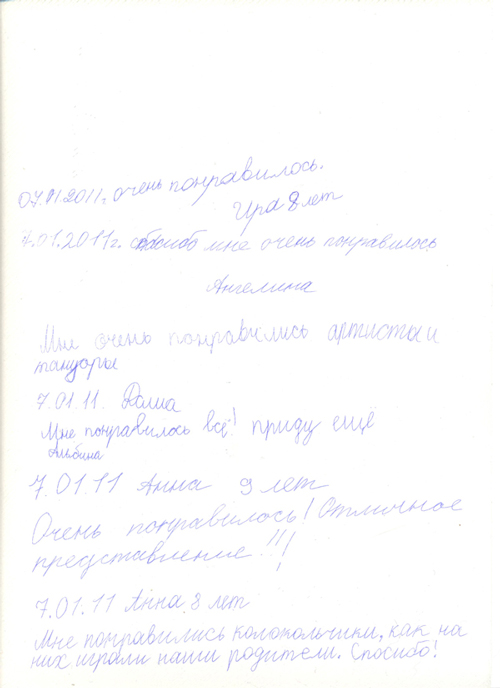 07.01.2011г. очень понравилось.
Ира 8 лет
7.01.2011г. мне очень понравилось
Ангелина
Мне очень понравились артисты и
танцоры
7.01.11. Даша
Мне понравилось всё! приду ещё
Альбина
7.01.11 Анна 9 лет
Очень понравилось! Отличное
представление!!!
7.01.11 Анна 8 лет
Мне понравились колокольчики, как на
них играли наши родители. Спосибо!